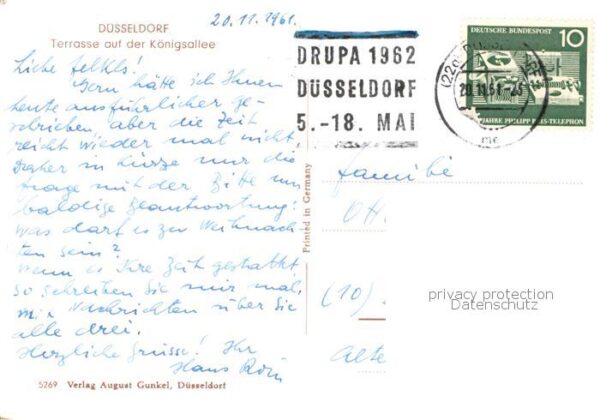 DÜSSELDORF
Terrasse auf der Königsallee
20.11.1961.
Liebe
Gern hätte ich Ihnen
heute ausführlicher ge-
schrieben, aber die Zeit
reicht wieder mal nicht.
Daher in Kürze nur die
Frage mit der Bitte um
baldige Beantwortung:
was darf es zu Weihnach-
ten sein?
Wenn es Ihre Zeit gestattet,
so schreiben Sie mir mal,
Nachrichten über Sie
alle drei.
Herzliche Grüsse! Ihr
Hans
5269 Verlag August Gunkel, Düsseldorf
Printed in Germany
DRUPA 1962
DÜSSELDORF
5.-18. MAI
20.11.61
DEUTSCHE BUNDESPOST 10
JAHRE PHILIPP REIS-TELEPHON
Familie
(10)
Alte
privacy protection
Datenschutz